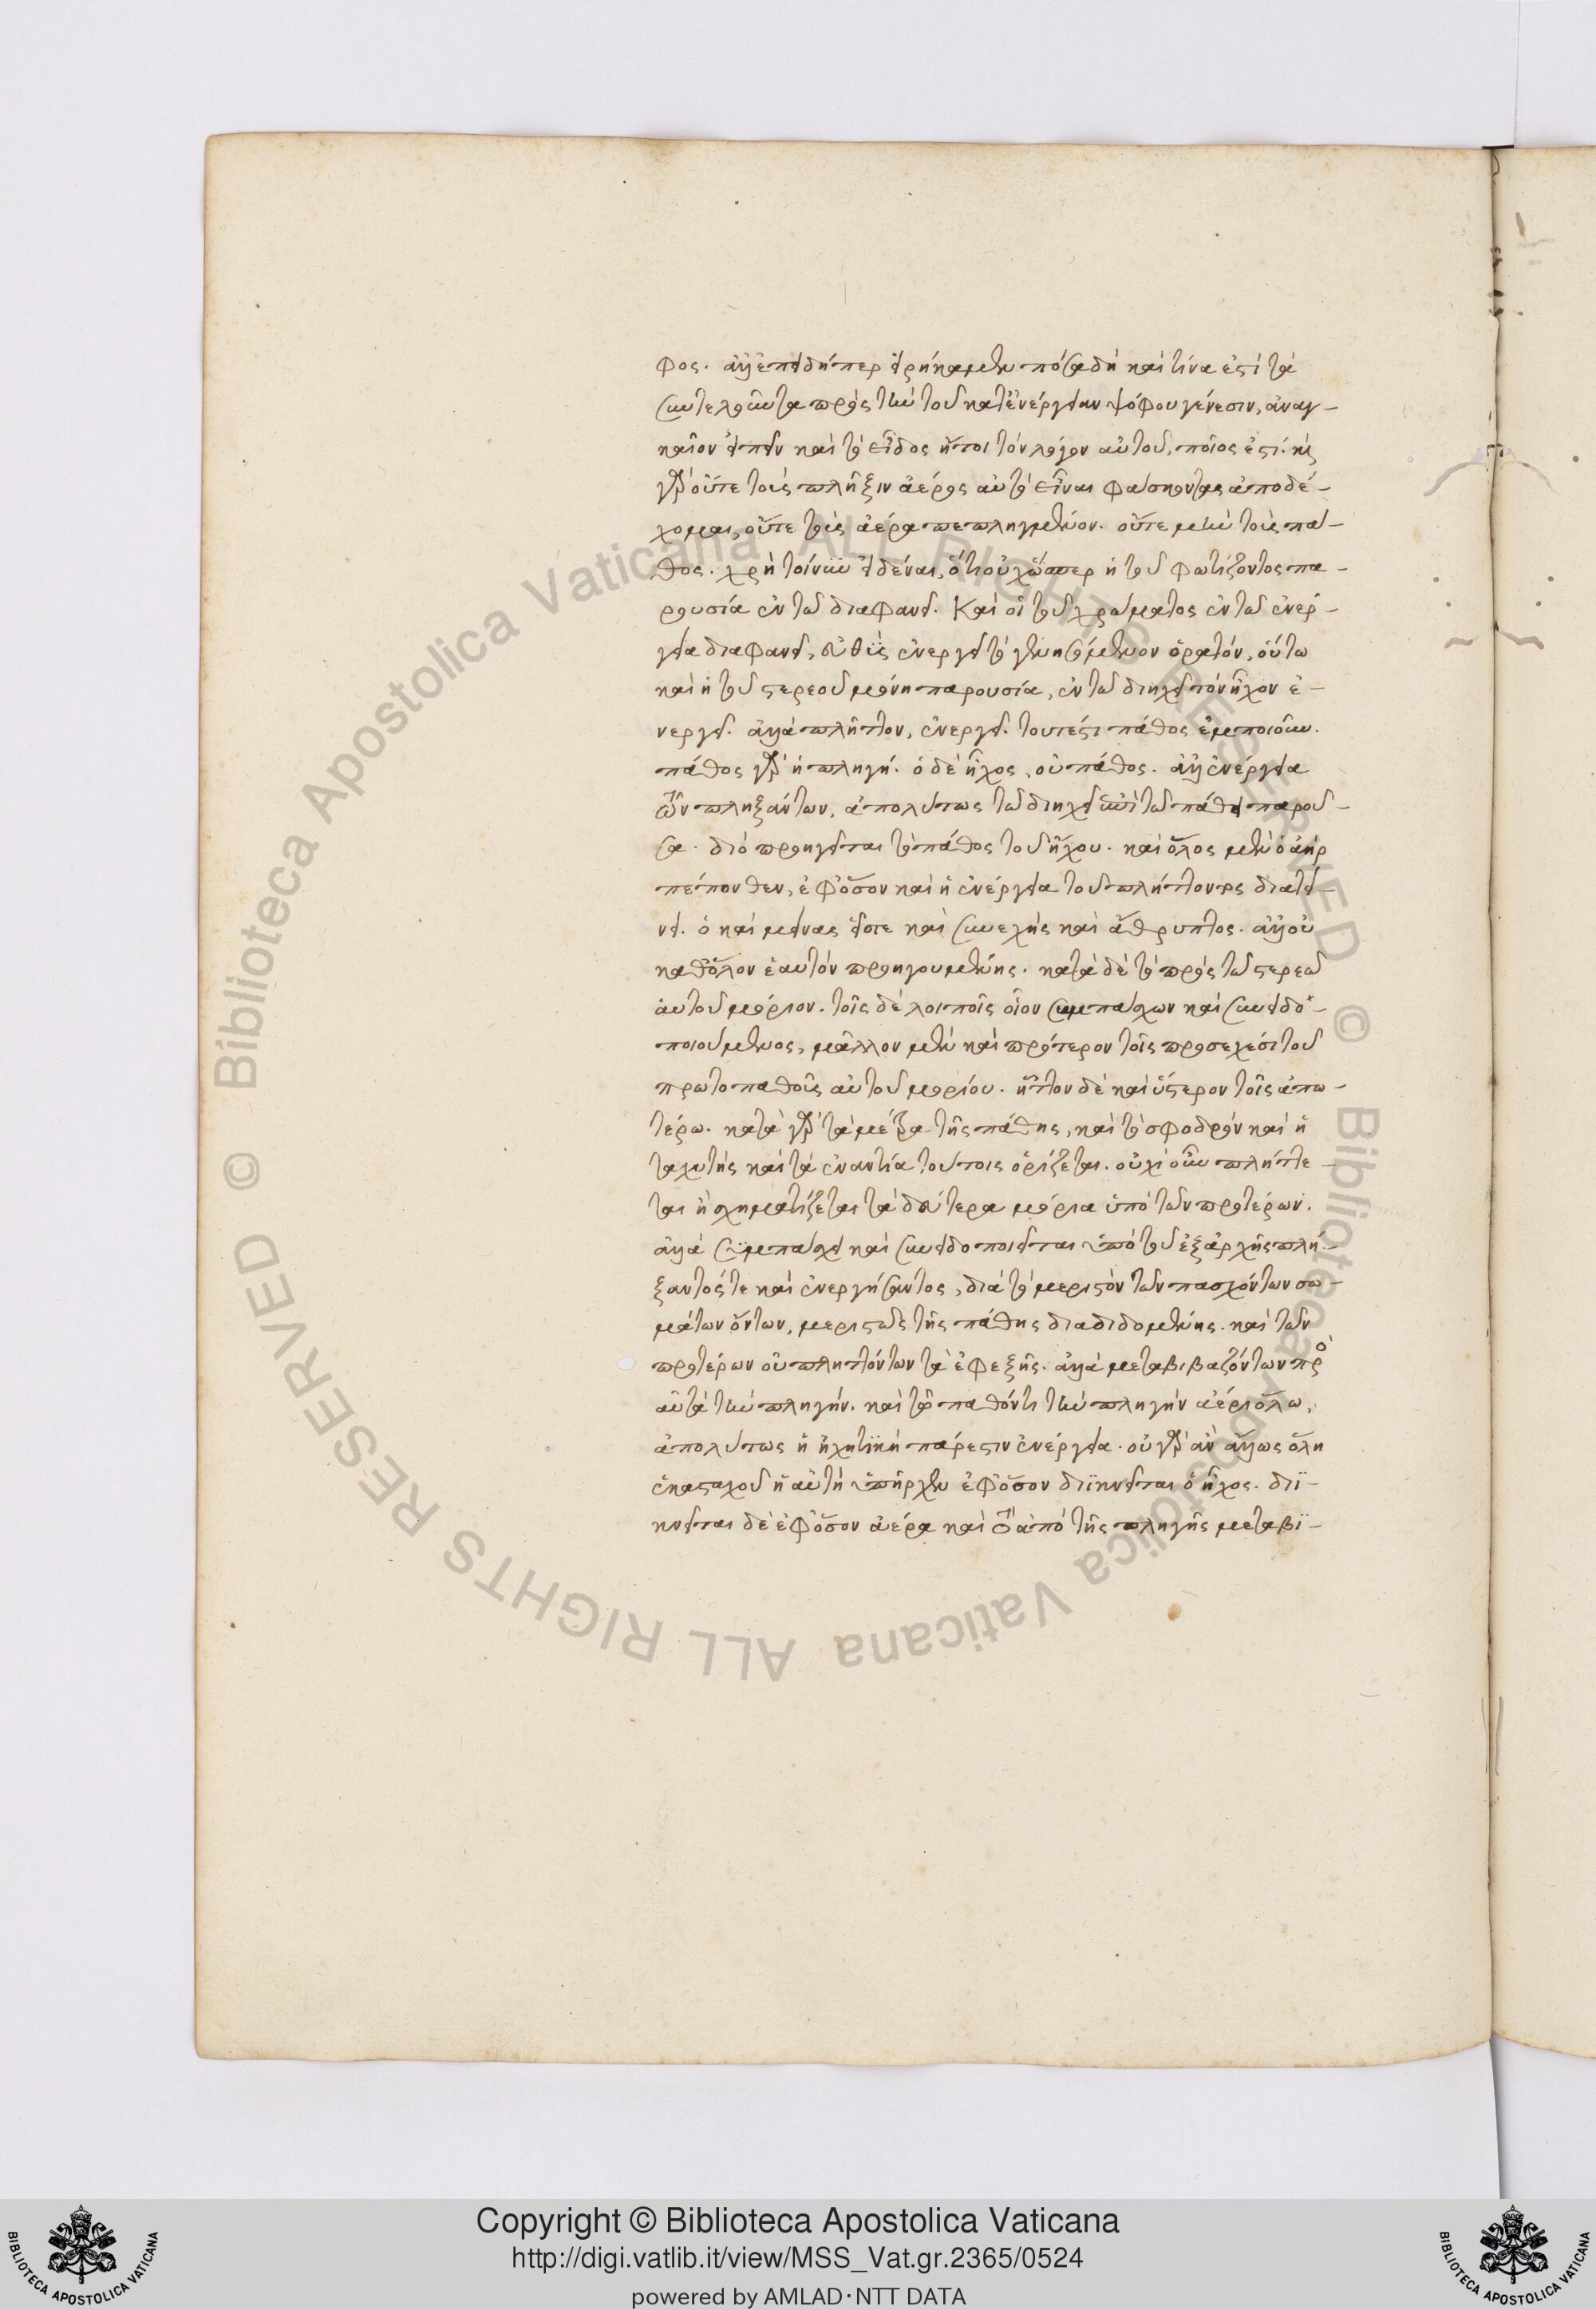 φος. ἀλλ' ἐπειδήπερ εἰρήκαμεν πόσα δὴ καὶ τίνα ἐστὶ τὰ
συντελοῦντα πρὸς τὴν τοῦ κατ' ἐνέργειαν ψόφου γένεσιν, ἀναγ-
καῖον εἰπεῖν καὶ τὸ εἶδος ἤτοι τὸν λόγον αὐτοῦ, ποῖος ἐστί.
γὰρ οὔτε τοὺς πλῆξιν ἀέρος αὐτὸ εἶναι φάσκοντας ἀποδέ-
χομαι, οὔτε τοὺς ἀέρα πεπληγμένον. οὔτε μὴν τοὺς πά-
θος. χρὴ τοίνυν εἰδέναι, ὅτι οὐχ ὥσπερ ἡ τοῦ φωτίζοντος πα-
ρουσία ἐν τῷ διαφανεῖ. καὶ οἱ τοῦ χρώματος ἐν τῷ ἐνερ-
γείᾳ διαφανεῖ, εὐθὺς ἐνεργεῖ τὸ γενησόμενον ὁρατόν, οὕτω
καὶ ἡ τοῦ στερεοῦ μόνη παρουσία, ἐν τῷ διηχεῖ τὸν ἦχον ἐ-
νεργεῖ. ἀλλὰ πλῆττον, ἐνεργεῖ. τουτέστι πάθος ἐμποιοῦν.
πάθος γὰρ ἡ πληγή. ὁ δὲ ἦχος, οὐ πάθος. ἀλλ' ἐνέργεια
τῶν πληξάντων, ἀπολύτως τῷ διηχεῖ ἐπὶ τῷ πάθει παροῦ-
σα. διὸ προηγεῖται τὸ πάθος τοῦ ἤχου. καὶ ὅλος μὲν ὁ ἀὴρ
πέπονθεν, ἐφ' ὅσον καὶ ἡ ἐνέργεια τοῦ πλήττοντος διατεί-
νει. ὁ καὶ μείνας εἴστε καὶ συνεχὴς καὶ ἄθρυπτος. ἀλλ' οὐ
καθ' ὅλον ἑαυτὸν προηγουμένης. κατὰ δὲ τὸ πρὸς τῷ στερεῷ
αὐτοῦ μόριον. τοῖς δὲ λοιποῖς οἷον συμπάσχων καὶ συνειδο-
ποιούμενος, μᾶλλον μὲν καὶ πρότερον τοῖς προσεχέσι τοῦ
πρωτοπαθοῦς αὐτοῦ μορίου. ἧττον δὲ καὶ ὕστερον τοῖς ἀπω-
τέρω. κατὰ γὰρ τὰ μέτρα τῆς πάθης, καὶ τὸ σφοδρὸν καὶ ἡ
ταχυτὴς καὶ τὰ ἐναντία τούτοις ὁρίζεται. οὐχὶ οὖν πλήττε-
ται ἢ σχηματίζεται τὰ δεύτερα μόρια ὑπὸ τῶν προτέρων.
ἀλλὰ συμπάσχει καὶ συνειδοποιεῖται ὑπὸ τοῦ ἐξ ἀρχῆς πλή-
ξαντός τε καὶ ἐνεργήσαντος, διὰ τὸ μεριστὸν τῶν πασχόντων σω-
μάτων ὄντων, μεριστῶς τῆς πάθης διαδιδομένης. καὶ τῶν
προτέρων οὐ πληττόντων τὰ ἐφεξῆς. ἀλλὰ μεταβιβαζόντων πρὸ
αὐτὰ τὴν πληγήν. καὶ τῷ παθόντι τὴν πληγὴν ἀέρι ὅλῳ,
ἀπολύτως ἡ ἠχητικὴ πάρεστιν ἐνέργεια. οὐ γὰρ ἂν ἄλλως ὅλη
ἑκασταχοῦ ἡ αὐτὴ ὑπῆρχεν ἐφ' ὅσον διϊκνεῖται ὁ ἦχος. διϊ-
κνεῖται δὲ ἐφ' ὅσον ἀέρα καὶ τὸ ἀπὸ τῆς πληγῆς μεταβι-
Copyright © Biblioteca Apostolica Vaticana
http://digi.vatlib.it/view/MSS_Vat.gr.2365/0524
powered by AMLAD·NTT DATA
BIBLIOTECA APOSTOLICA VATICANA
BIBLIOTECA APOSTOLICA VATICANA
© Biblioteca Apostolica Vaticana ALL RIGHTS RESERVED © Biblioteca Apostolica Vaticana ALL RIGHTS RESERVED